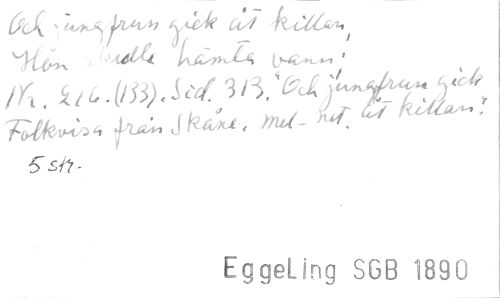 Och jungfrun gick åt killan,
Hon skulle hämta vann!
Nr. 216. (133). Sid. 313. "Och jungfrun gick
Folkvisa från Skåne. mel-not. åt killan".
5 str.
EggeLing SGB 1890